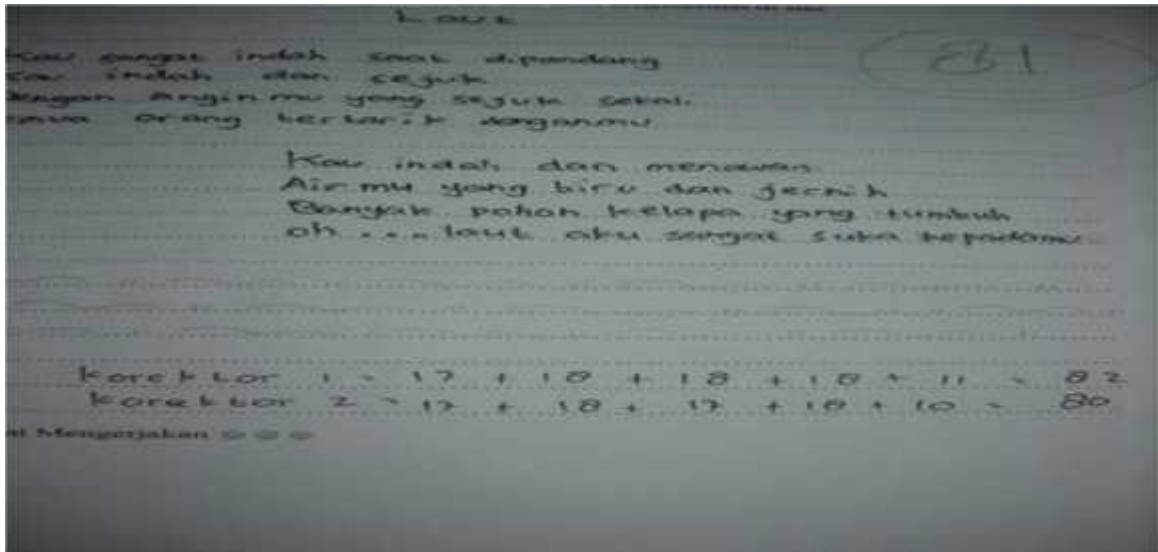 Laut
Kau sangat indah saat dipandang
Kau indah dan sejuk
Dengan Angin mu yang sejuk sekali
orang tertarik denganmu
81
Kau indah dan menawan
Air mu yang biru dan jernih
Banyak pohon kelapa yang tumbuh
oh .... laut aku sangat suka kepadamu
Korektor 1 = 17 + 18 + 18 + 18 + 11 = 82
Korektor 2 = 17 + 18 + 17 + 18 + 10 = 80
Mengerjakan